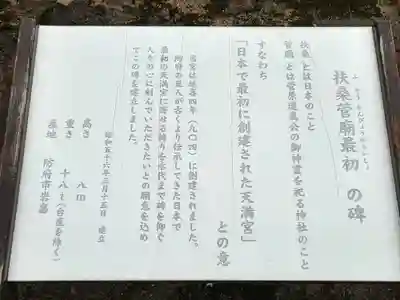 ふそうかんびょうさいしょ
扶桑菅廟最初の碑
扶桑とは日本のこと
菅廟とは菅原道真公の御神霊を祀る神社のこと
すなわち
「日本で最初に創建された天満宮」
との意
当宮は延喜四年(九〇四)に創建されました。
防府の里人が古くより伝承してきた日本で
最初の天満宮に寄せる誇りを永代まで碑を仰ぐ
人々の心に刻んでいただきたいとの願意を込め
てこの碑を建立しました。
昭和五十六年三月十五日 建立
高さ 八m
重さ 十八t(台座を除く)
産地 防府市岩畠